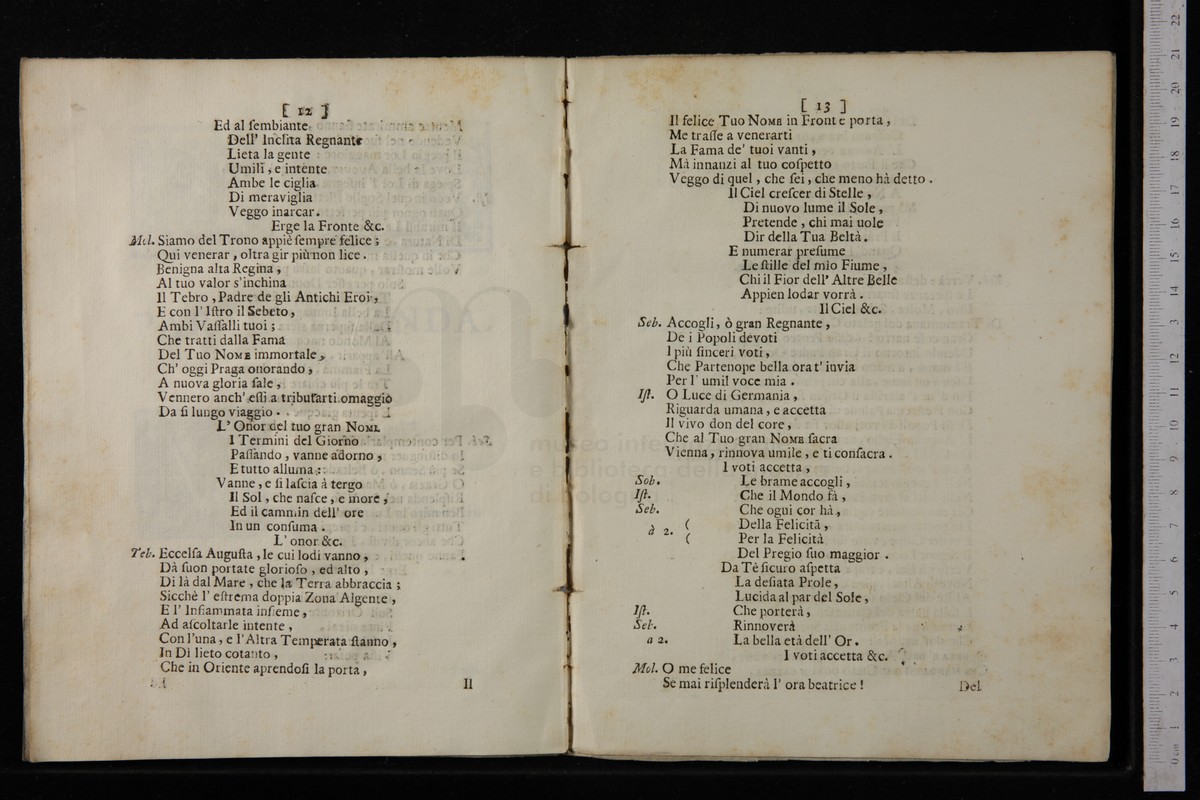 [ 12 ]
Ed al ſembiante
Dell' Inclita Regnante
Lieta la gente
Umili, e intente
Ambe le ciglia
Di meraviglia
Veggo inarcar.
Erge la Fronte &c.
Mol. Siamo del Trono appiè ſempre felice;
Qui venerar, oltra gir più non lice.
Benigna alta Regina,
Al tuo valor s'inchina
Il Tebro, Padre de gli Antichi Eroi,
E con l' Iſtro il Sebeto,
Ambi Vaſſalli tuoi;
Che tratti dalla Fama
Del Tuo NOME immortale,
Ch' oggi Praga onorando,
A nuova gloria ſale,
Vennero anch' eſſi a tributarti omaggio
Da ſi lungo viaggio.
L' Onor del tuo gran NOME
I Termini del Giorno
Paſſando, vanne adorno,
E tutto alluma:
Vanne, e ſi laſcia à tergo
Il Sol, che naſce, e more,
Ed il cammin dell' ore
In un conſuma.
L' onor &c.
Teb. Eccelſa Auguſta, le cui lodi vanno,
Dà ſuon portate glorioſo, ed alto,
Di là dal Mare, che la Terra abbraccia;
Sicchè l' eſtrema doppia Zona Algente,
E l' Infiammata inſieme,
Ad aſcoltarle intente,
Con l'una, e l'Altra Temperata ſtanno,
In Dì lieto cotanto,
Che in Oriente aprendoſi la porta,
Il
[ 13 ]
Il felice TUO NOME in Fronte porta,
Me traſſe a venerarti
La Fama de' tuoi vanti,
Mà innanzi al tuo coſpetto
Veggo di quel, che ſei, che meno hà detto.
Il Ciel creſcer di Stelle,
Di nuovo lume il Sole,
Pretende, chi mai uole
Dir della Tua Beltà.
E numerar preſume
Le ſtille del mio Fiume,
Chi il Fior dell' Altre Belle
Appien lodar vorrà.
Il Ciel &c.
Seb. Accogli, ò gran Regnante,
De i Popoli devoti
I più ſinceri voti,
Che Partenope bella ora t' invia
Per l' umil voce mia.
Iſt. O Luce di Germania,
Riguarda umana, e accetta
Il vivo don del core,
Che al Tuo gran NOME ſacra
Vienna, rinnova umile, e ti conſacra.
I voti accetta,
Sob. Le brame accogli,
Iſt. Che il Mondo fà,
Seb. Che ogui cor hà,
à 2. ( Della Felicità,
( Per la Felicità
Del Pregio ſuo maggior.
Da Tè ſicuro aſpetta
La deſiata Prole,
Lucida al par del Sole,
Iſt. Che porterà,
Seb. Rinnoverà
a 2. La bella età dell' Or.
I voti accetta &c.
Mol. O me felice
Se mai riſplenderà l' ora beatrice!
Del